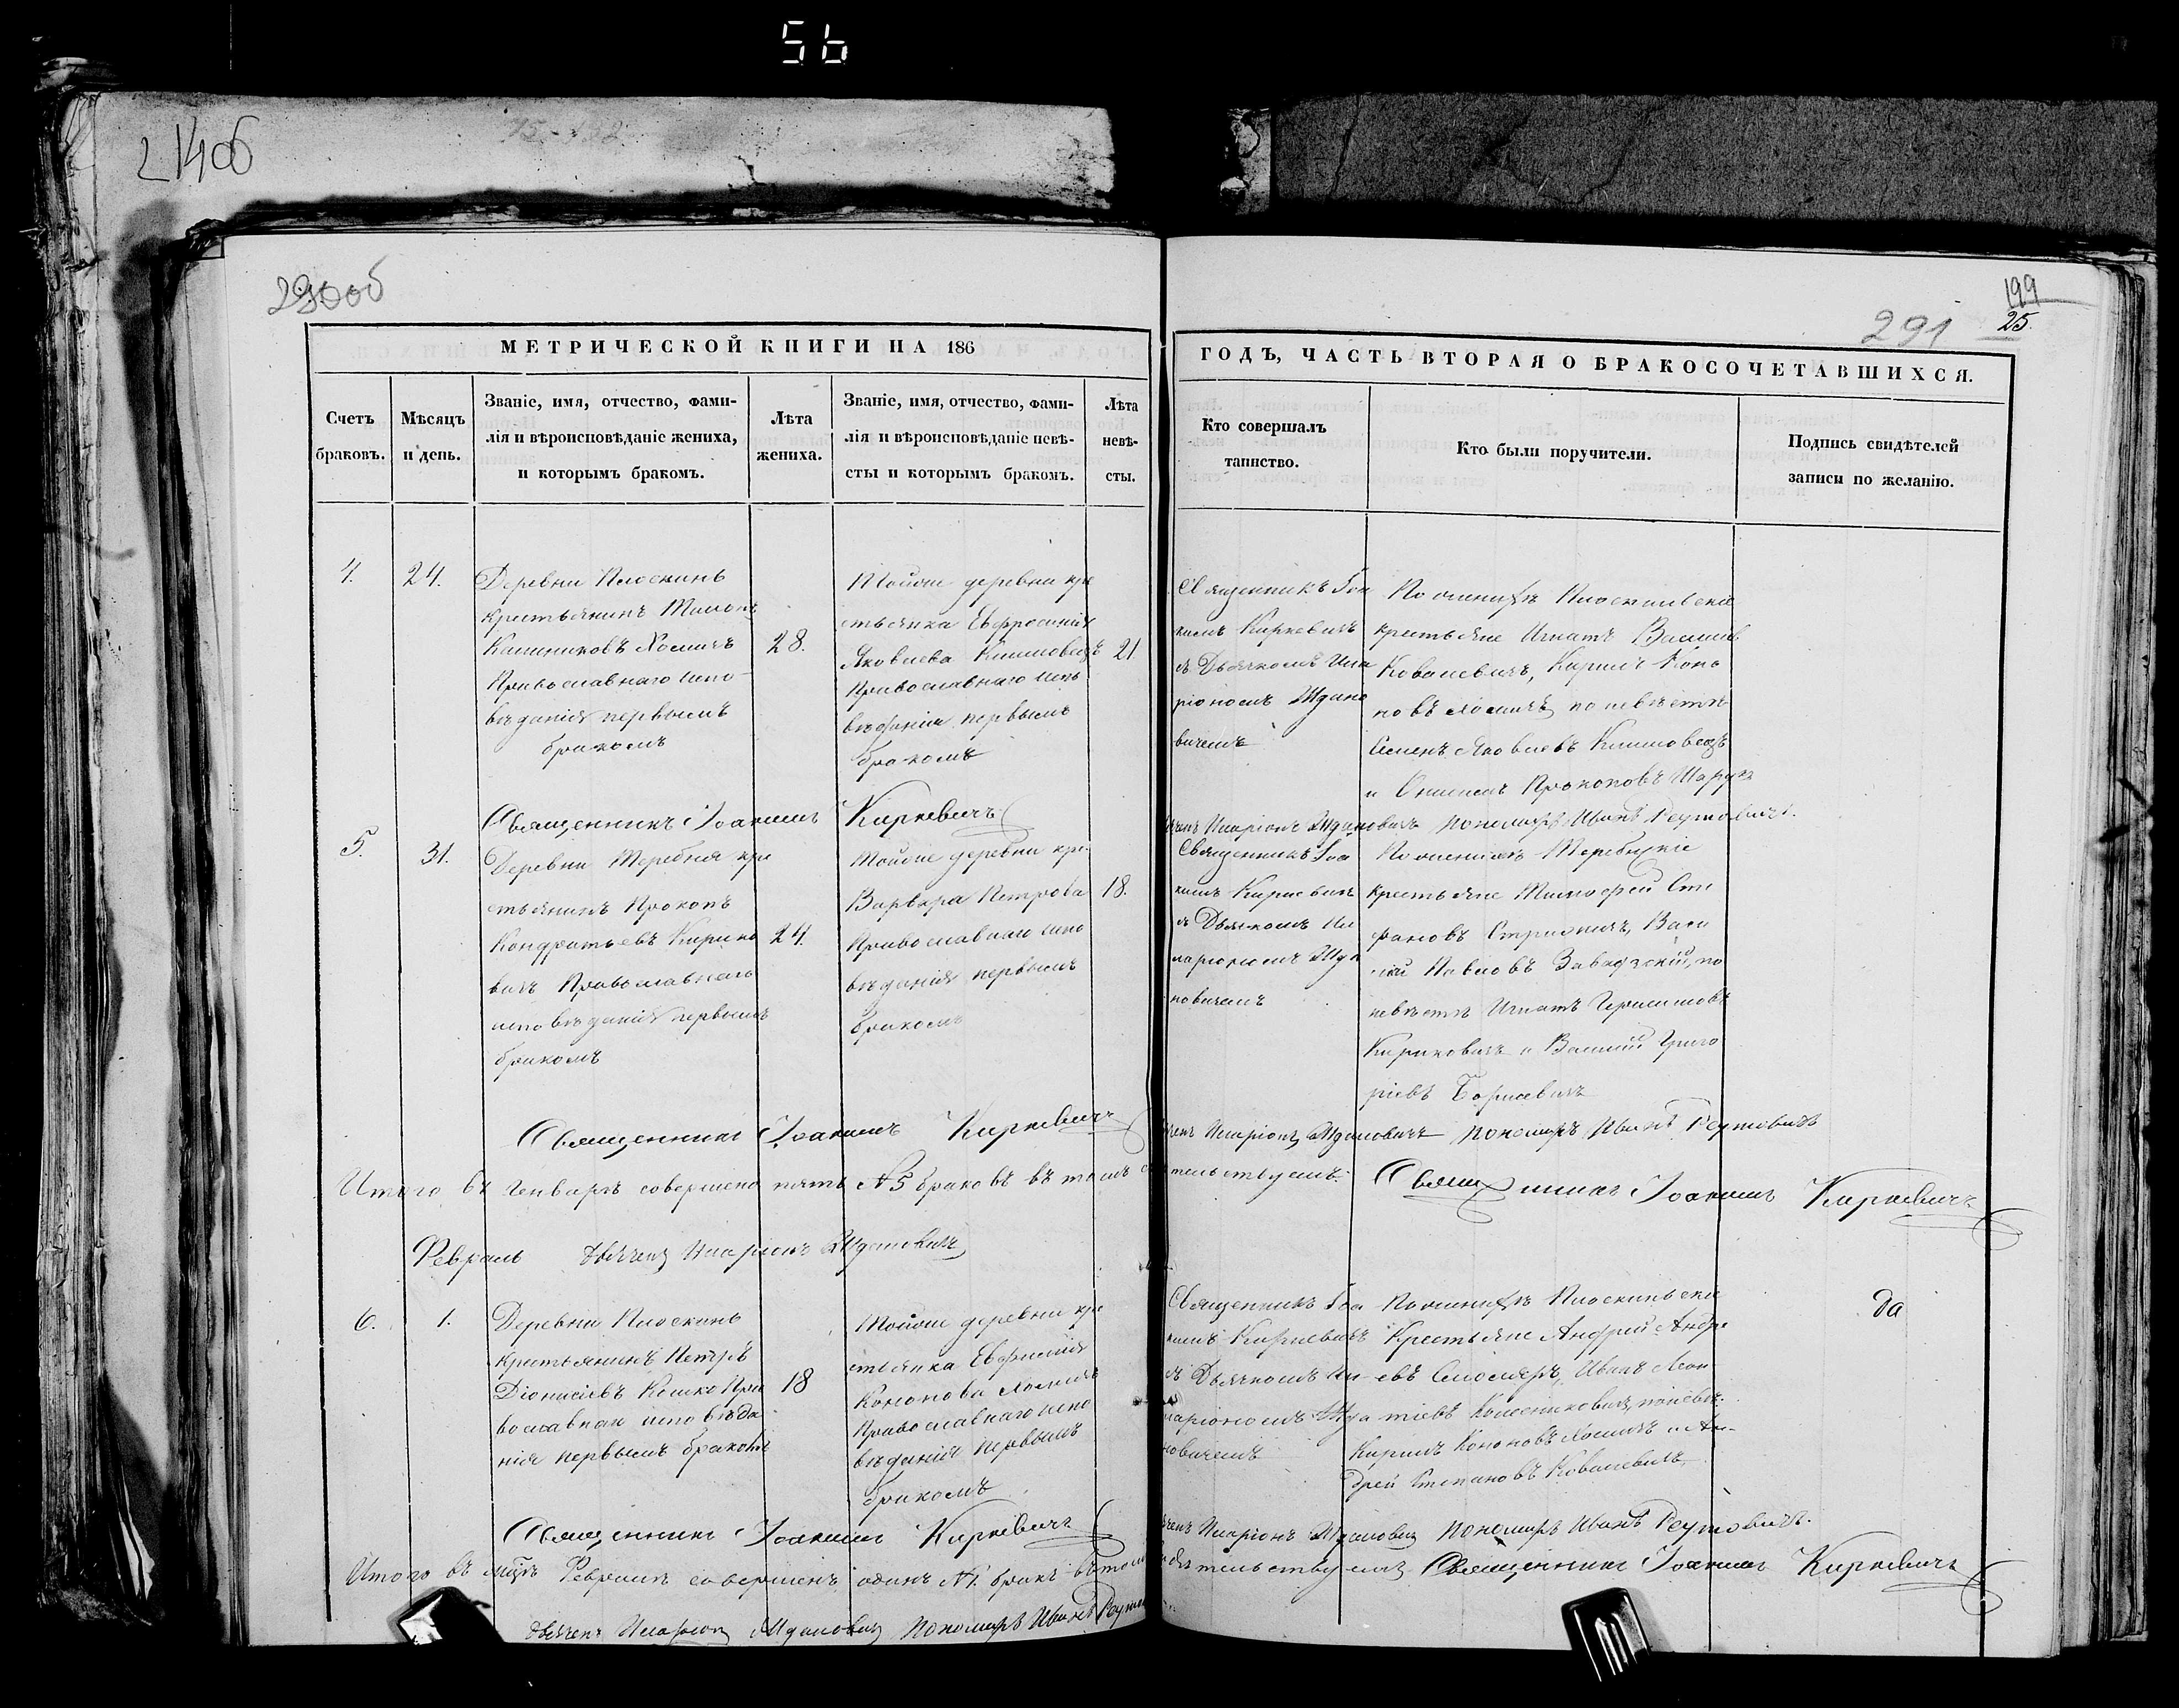 56
140б
290об
199
25.
291
МЕТРИЧЕСКОЙ КНИГИ НА 186
ГОДЪ, ЧАСТЬ ВТОРАЯ О БРАКОСОЧЕТАВШИХСЯ.
Счетъ
браковъ.
Мѣсяцъ
и день.
Званіе, имя, отчество, фами-
лія и вѣроисповѣданіе жениха,
и которымъ бракомъ.
Лѣта
жениха.
Званіе, имя, отчество, фами-
лія и вѣроисповѣданіе невѣ-
сты и которымъ бракомъ.
Лѣта
невѣ-
сты.
Кто совершалъ
таинство.
Кто были поручители.
Подпись свидѣтелей
записи по желанію.
4.
24.
Деревни Плоскинь
крестьянинъ
Хомичъ
Православнаго испо-
вѣданія первымъ
бракомъ
28.
Тойже деревни кре
стьянка Евфросинія
Яковлева Климовецъ
Православнаго испо
вѣданія первымъ
бракомъ
21
Священникъ Іоа
кимъ Киркевичъ
съ Дьячкомъ Ила
ріономъ Ждано
вичемъ
По женихѣ Плоскинскіе
крестьяне Игнатъ
Ковалевичъ, Кирилъ Коно
новъ Хомичъ, по невѣстѣ
Семенъ Яковлевъ Климовецъ
и Онисимъ Прокоповъ
Священникъ Іоакимъ Киркевичъ
Иларіонъ Ждановичъ пономарь Иванъ Реутовичъ.
5.
31.
Деревни Теребня кре
стьянинъ Прокопъ
Кондратьевъ Кирико
вичъ Православнаго
исповѣданія первымъ
бракомъ
24.
Тойже деревни кре.
Варвара Петрова
Православнаго испо
вѣданія первымъ
бракомъ
18.
Священникъ Іоа
кимъ Киркевичъ
съ Дьячкомъ Ил
ларіономъ Жда
новичемъ
По женихѣ
крестьяне Тимофей Сте
фановъ Васи
лій Павловъ Завадзскій, по
невѣстѣ Игнатъ Герасимовъ
Кириковичъ и Василій Григо
ріевъ Борисевичъ
Священникъ Іоакимъ Киркевичъ
Иларіонъ Ждановичъ пономарь Иванъ Реутовичъ
Итого въ Генварѣ совершено пять N 5 браковъ въ томъ
тельствуемъ. Священникъ Іоакимъ Киркевичъ
Февраль Дьячекъ Иларіонъ Ждановичъ
6.
1.
Деревни Плоскинь
крестьянинъ Петръ
Діонисіевъ Кошко Пра
вославнаго исповѣда
нія первымъ бракомъ
18
Тойже деревни кре
стьянка Евфимія
Кононова Хомичъ
Православнаго испо
вѣданія первымъ
бракомъ
Священникъ Іоа
кимъ Киркевичъ
съ Дьячкомъ Ил
ларіономъ Жда
новичемъ
По женихѣ Плоскинскіе
Крестьяне Андрей Андре
евъ Иванъ Леон
тіевъ Колесниковичъ, по невѣ-
Кирилъ Кононовъ Хомичъ и Ан-
дрей Степановъ Ковалевичъ.
да
Священникъ Іоакимъ Киркевичъ
Иларіонъ Ждановичъ Пономарь Иванъ Реутовичъ.
Итого въ мцѣ Февралѣ совершенъ одинъ N 1. бракъ въ томъ
тельствуемъ Священникъ Іоакимъ Киркевичъ
дьячекъ Иларіонъ Ждановичъ Пономарь Иванъ